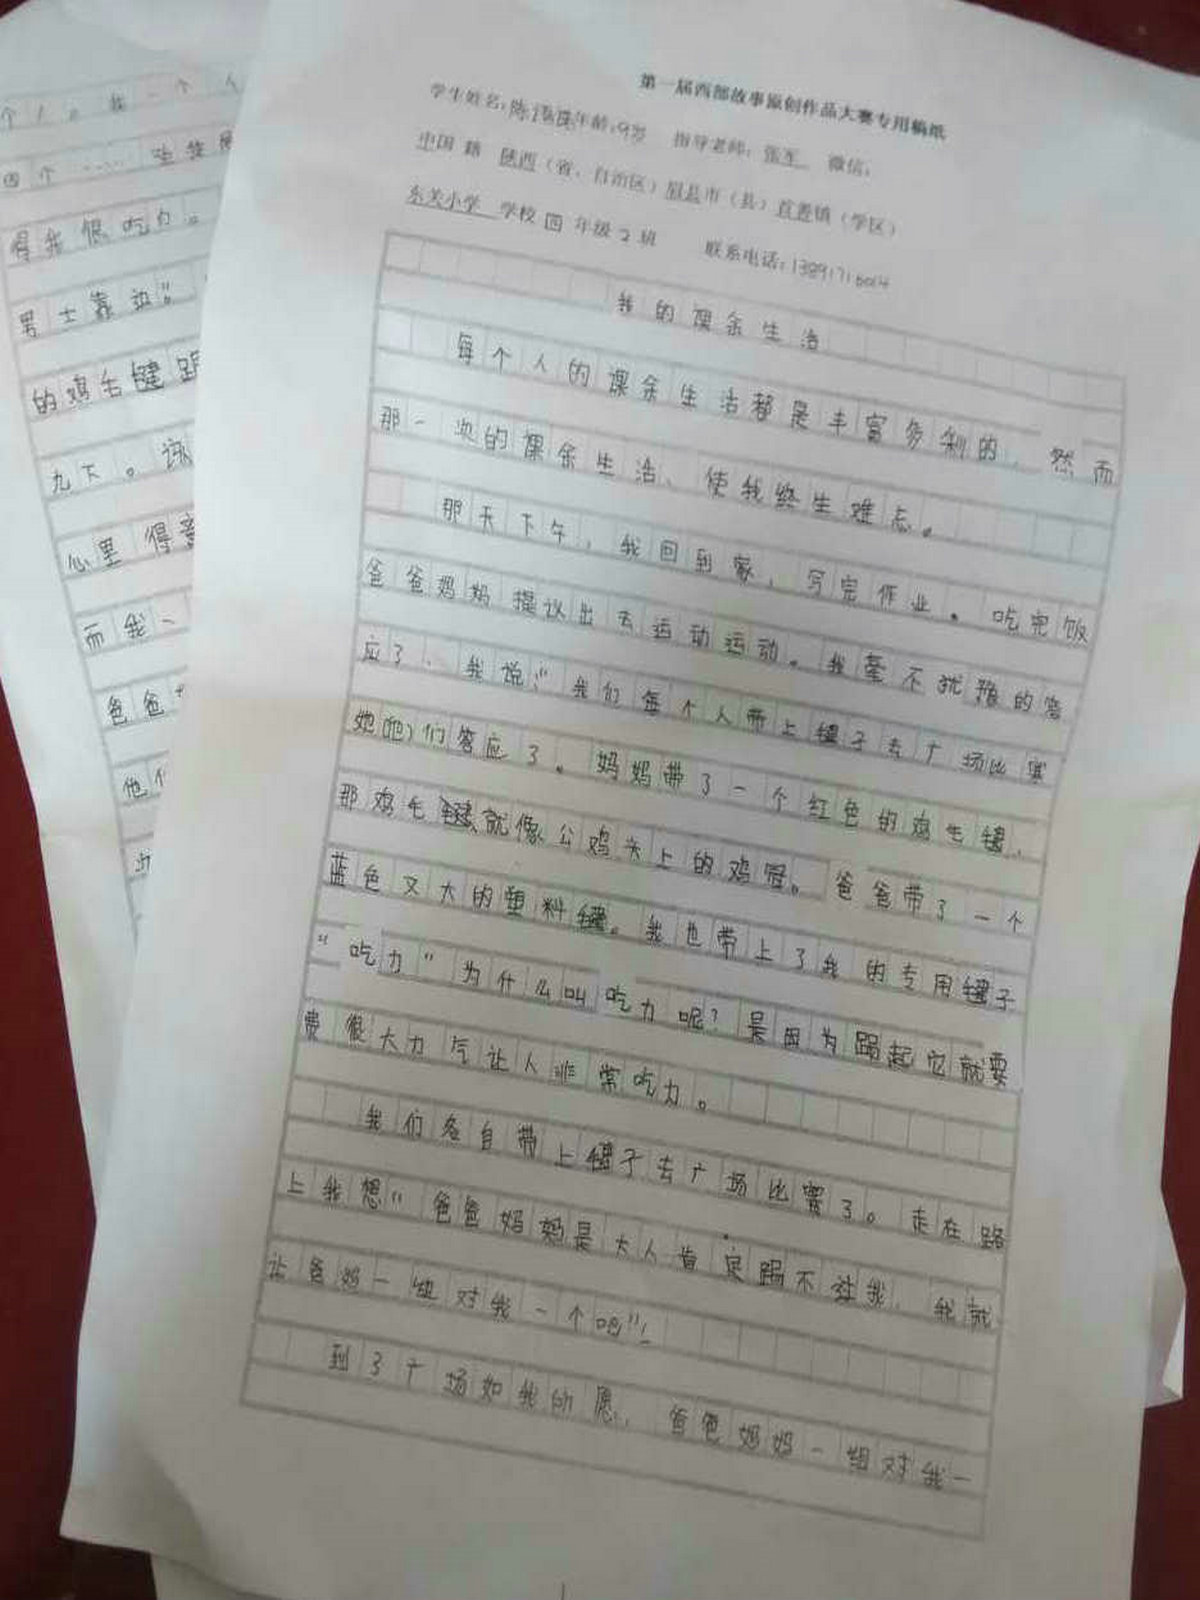 第一届西部故事原创作品大赛专用稿纸
学生姓名：陈 年龄：9岁 指导老师：张军 微信：
中国 籍 陕西（省、自治区）眉县市（县）首善镇（学区）
东关小学 学校 四 年级 2 班 联系电话：
我的课余生活
每个人的课余生活都是丰富多利的，然而
那一次的课余生活、使我终生难忘。
那天下午，我回到家，写完作业。吃完饭
爸爸妈妈提议出去运动运动。我毫不犹豫的答
应了、我说：“我们每个人带上毽子去广场比赛
她(吧)们答应了。妈妈带了一个红色的鸡毛毽，
那鸡毛毽就像公鸡头上的鸡冠。爸爸带了一个
蓝色又大的塑料毽。我也带上了我的专用毽子
“吃力”为什么叫吃力呢？是因为踢起它就要
费很大力气让人非常吃力。
我们各自带上毽子去广场比赛了。走在路
上我想“爸爸妈妈是大人肯定踢不过我，我就
让爸妈一组对我一个吧”！
到了广场如我所愿，爸爸妈妈一组对我一
个人。我一个人
四个……
得我很吃力。
男士靠边”。
的鸡毛毽踢
九下。
心里得意
而我一
爸爸
他们